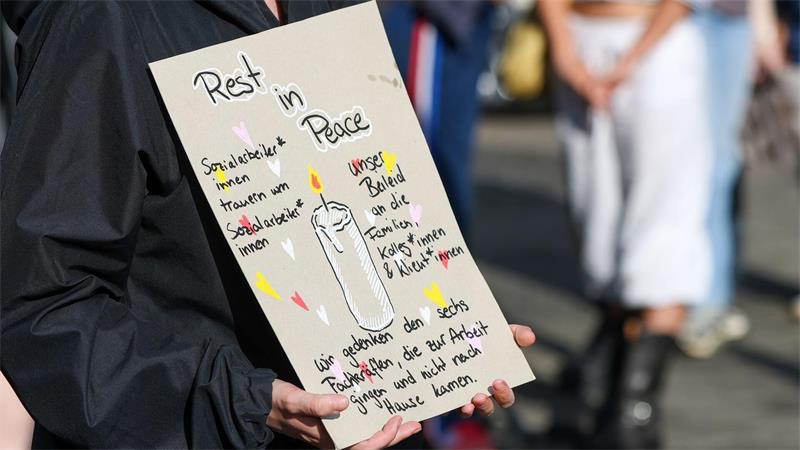 Rest
in
Peace
Sozialarbeiter*
innen
trauern um
Sozialarbeiter*
innen
unser
Beileid
an die
Familien,
Kolleg*innen
& Klient*innen
Wir gedenken den sechs
Fachkräften, die zur Arbeit
gingen und nicht nach
Hause kamen.